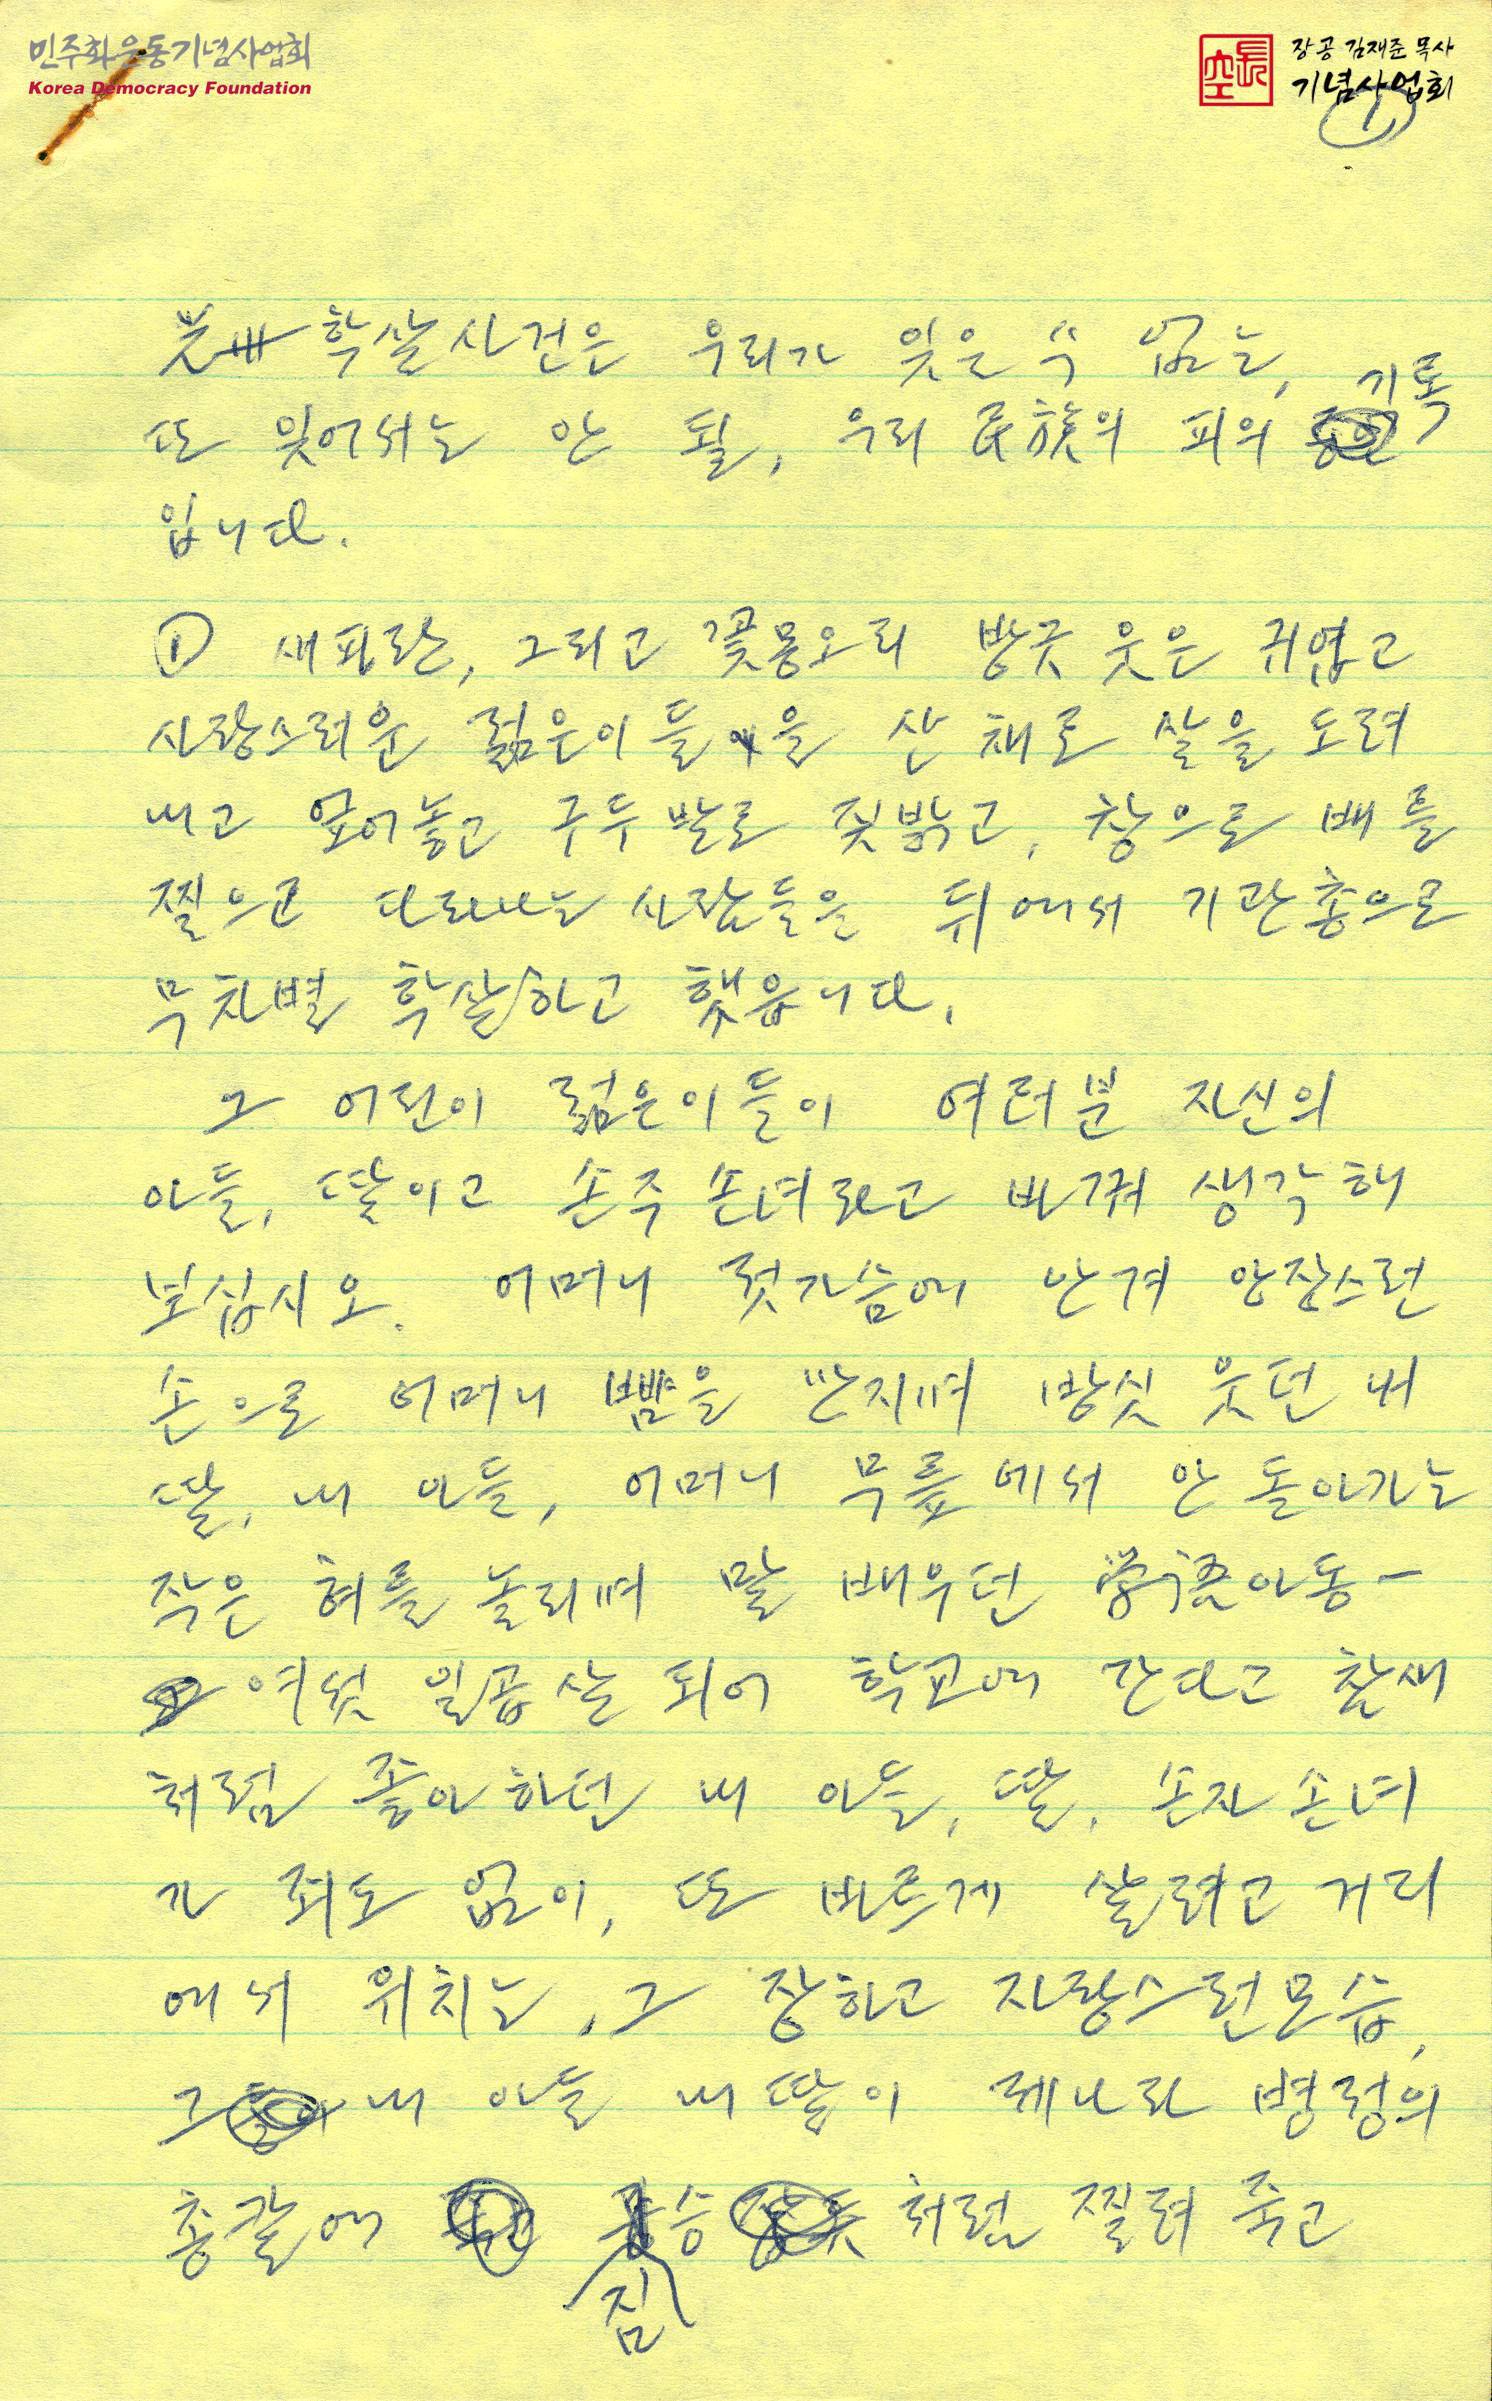 민주화운동기념사업회
Korea Democracy Foundation
장공 김재준 목사
기념사업회
1
光州 학살사건은 우리가 잊을 수 없는,
또 잊어서는 안 될, 우리 民族의 피의 기록
입니다.
① 새파란, 그리고 꽃몽오리 방긋 웃은 귀엽고
사랑스러운 젊은이들을 산 채로 살을 도려
내고 엎어놓고 구두발로 짖밝고, 창으로 배를
찔으고 다라나는 사람들을 뒤에서 기관총으로
무차별 학살하고 했읍니다.
그 어린이 젊은이들이 여러분 자신의
아들, 딸이고 손주 손녀라고 바꿔 생각해
보십시오. 어머니 젓가슴에 안겨 앙장스런
손으로 어머니 뺨을 만지며 방싯 웃던 내
딸, 내 아들, 어머니 무릎에서 안 돌아가는
작은 혀를 놀리며 말 배우던 아동-
여섯 일곱살 되어 학교에 간다고 참새
처럼 좋아하던 내 아들, 딸, 손자 손녀
가 죄도 없이, 또 바르게 살려고 거리
에서 위치는, 그 장하고 자랑스런 모습,
그 내 아들 내 딸이 제나라 병정의
총칼에 짐승처럼 찔려 죽고